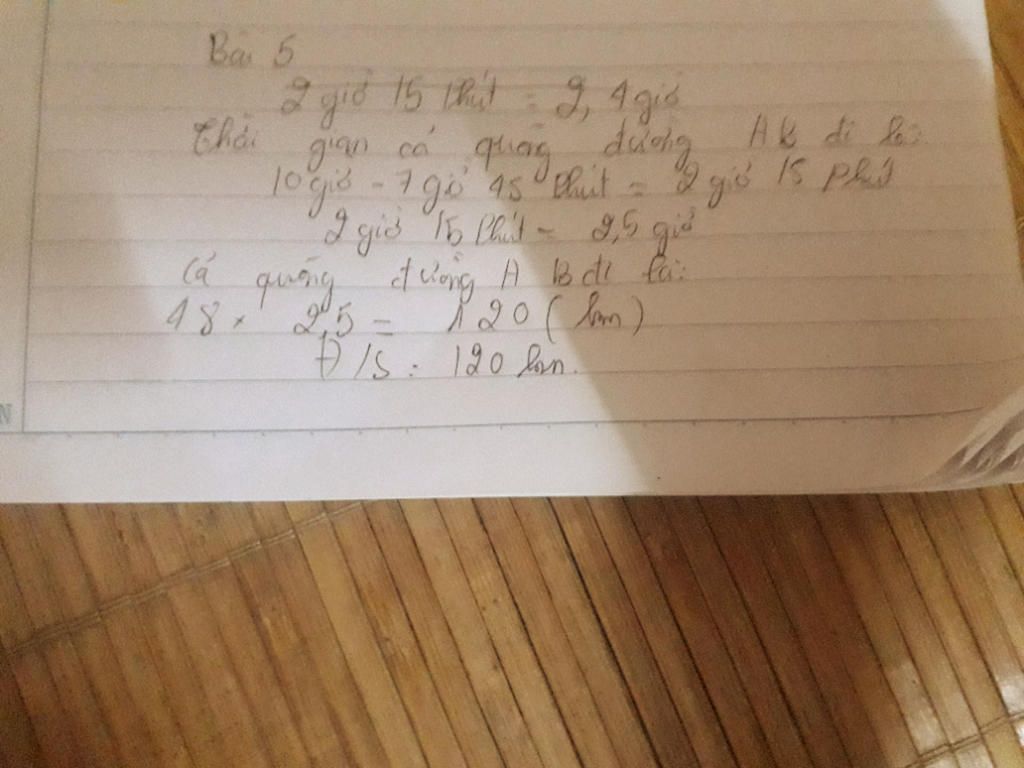 Bài 5
2 giờ 15 phút = 2,4 giờ
Thời gian cả quãng đường AB đi là:
10 giờ - 7 giờ 45 phút = 2 giờ 15 phút
2 giờ 15 phút = 2,5 giờ
Cả quãng đường A B đi là:
48 × 2,5 = 120 (km)
Đ/S: 120 km.
N